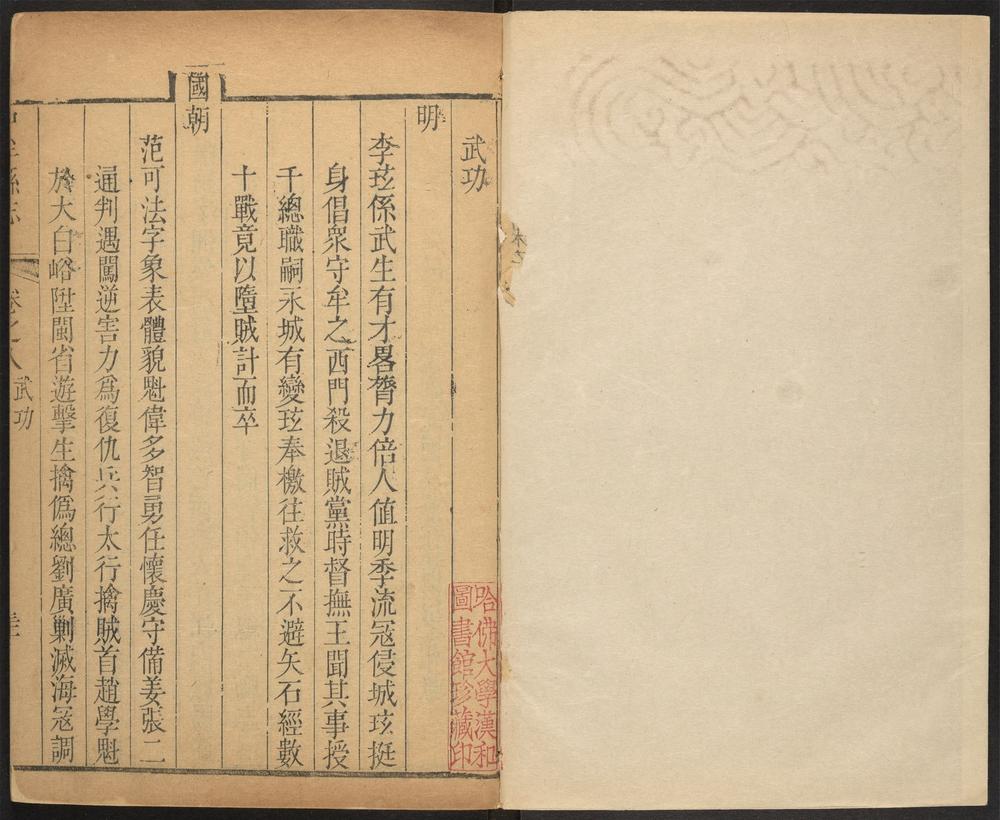 武功
明
李玹係武生有才畧膂力倍人值明季流冦侵城玹挺
身倡衆守牟之西門殺退賊黨時督撫王聞其事授
千總職嗣永城有變玹奉檄往救之不避矢石經數
十戰竟以墮賊計而卒
國朝
范可法字象表體貌魁偉多智勇任懷慶守備姜張二
通判遇闖逆害力為復仇兵行太行擒賊首趙學魁
於大白峪陞閩省遊擊生擒偽總劉廣剿滅海冦調
卷之八 武功
哈佛大學漢和
圖書館珍藏印